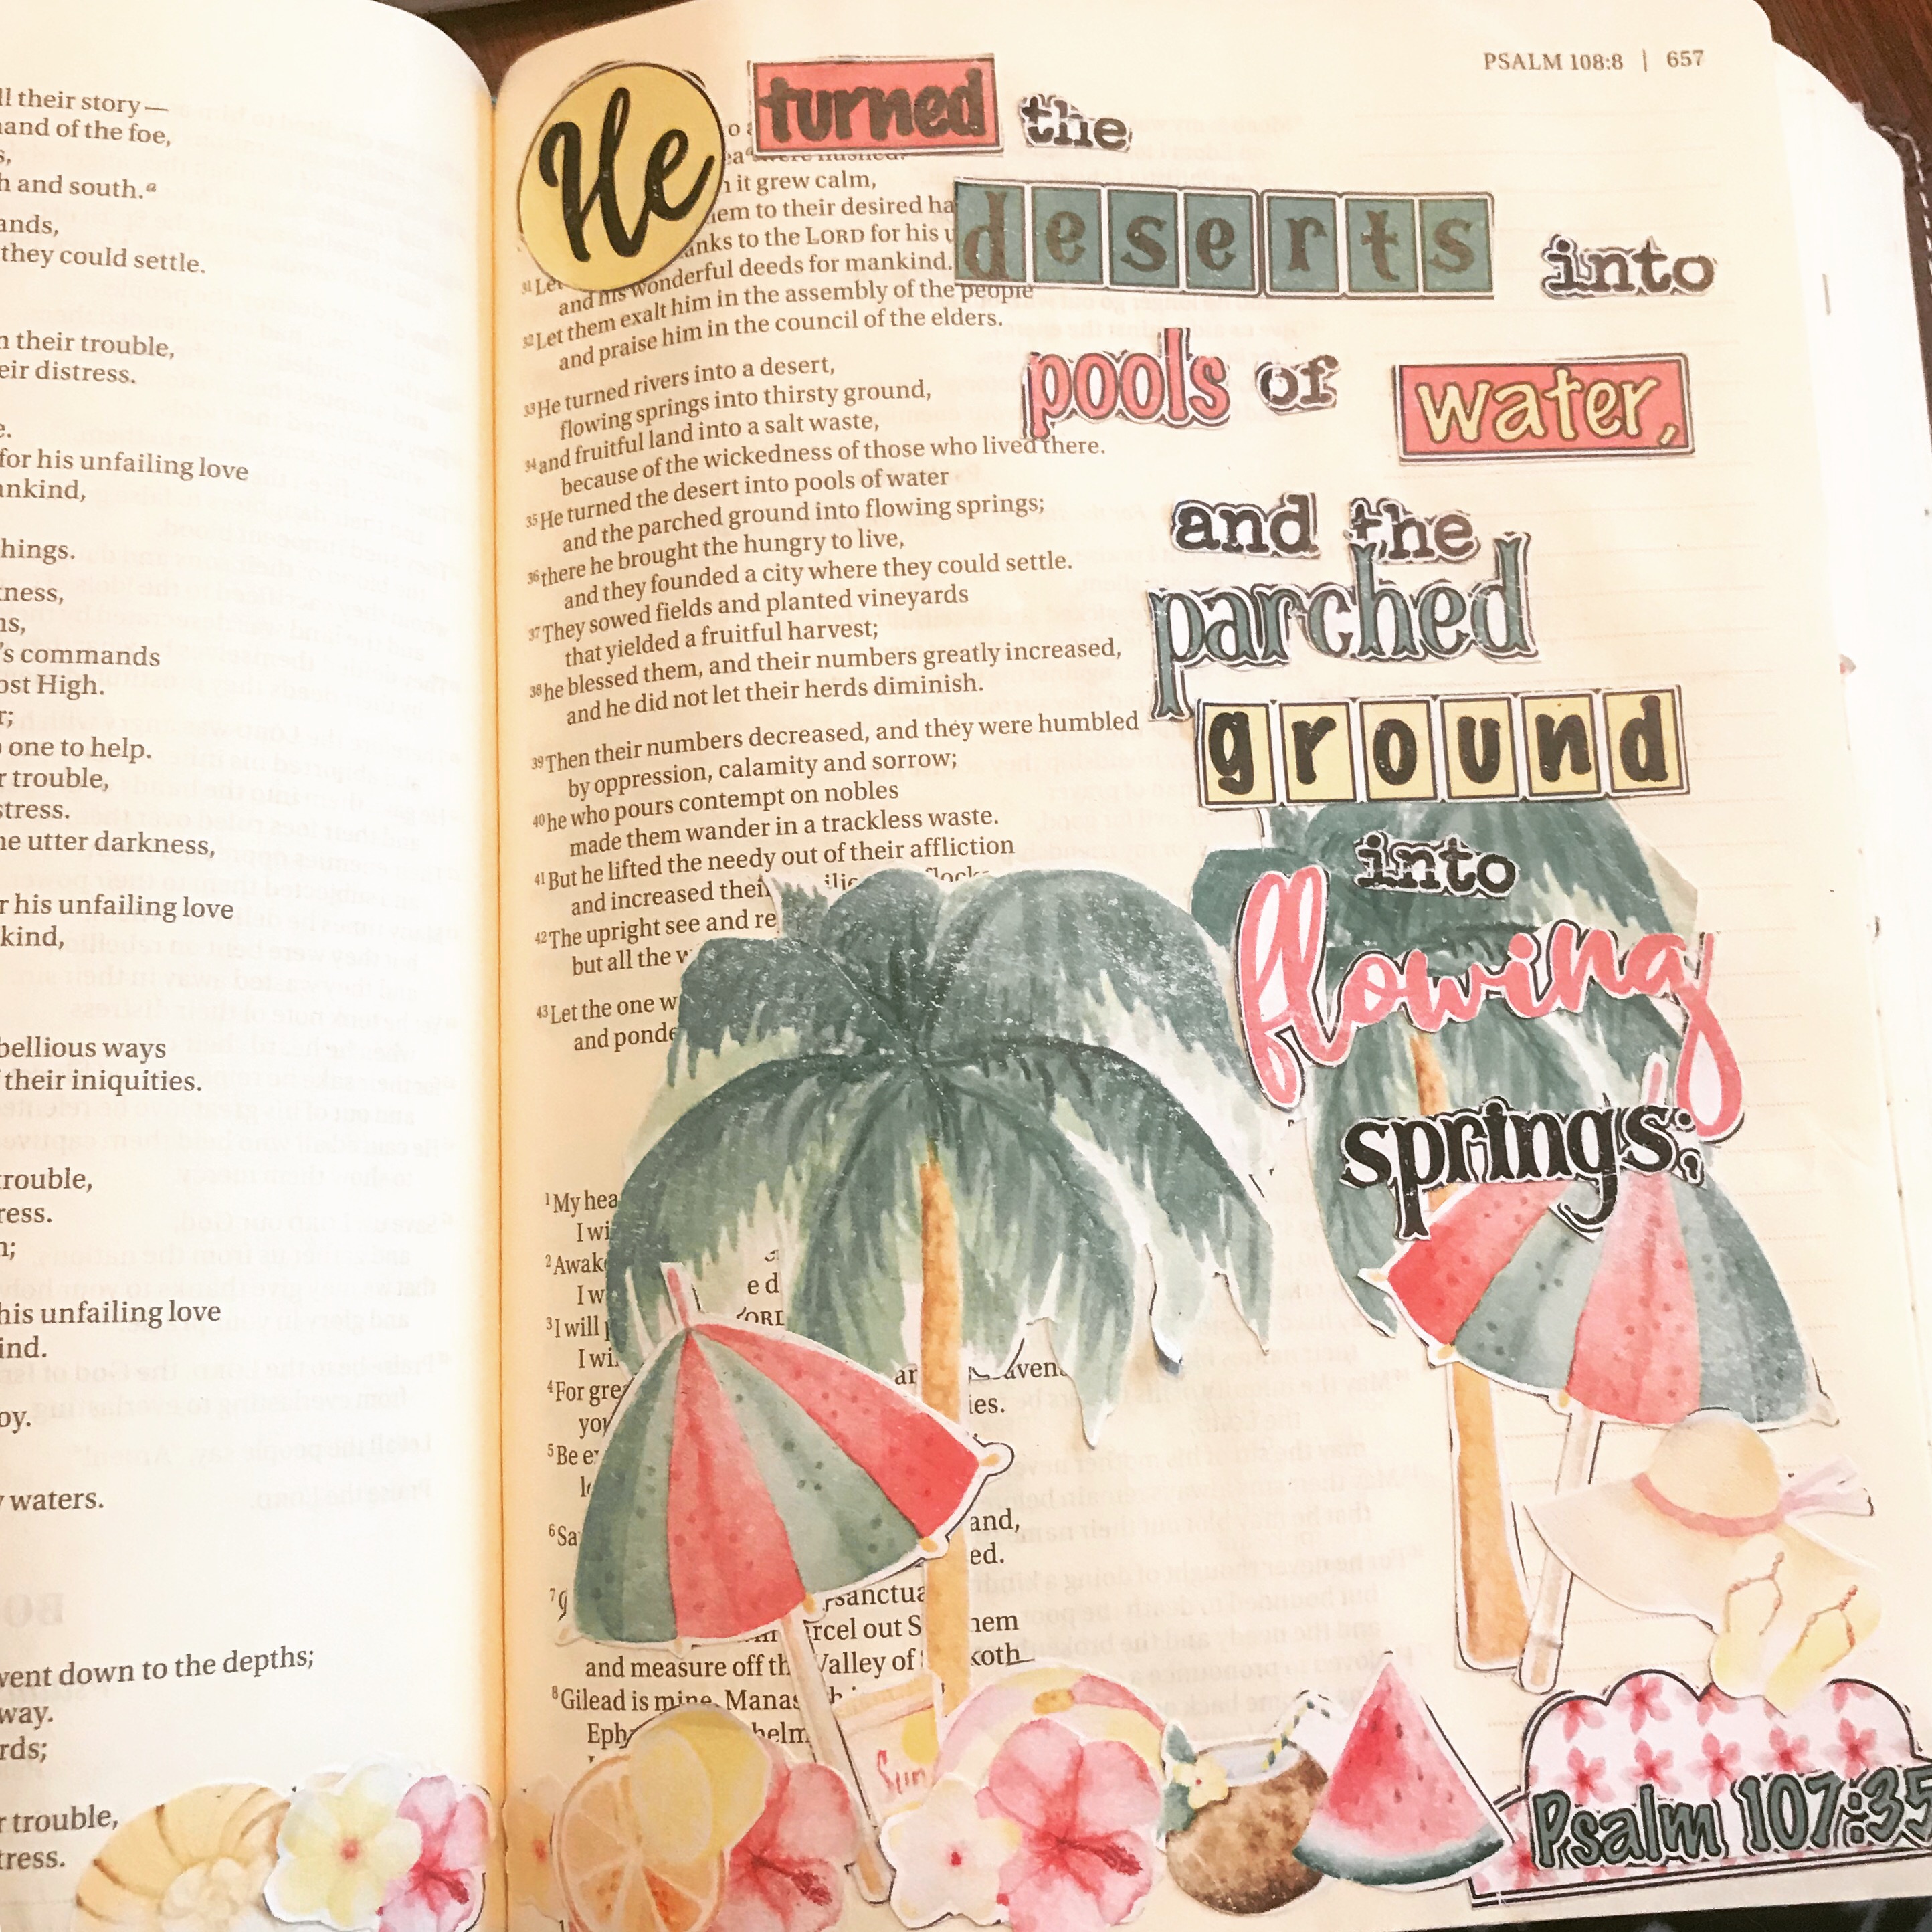 ll their story—
and of the foe,
h and south.a
ands,
they could settle.
n their trouble,
eir distress.
for his unfailing love
ankind,
hings.
kness,
ns,
's commands
ost High.
r;
one to help.
r trouble,
stress.
he utter darkness,
r his unfailing love
kind,
bellious ways
their iniquities.
trouble,
ress.
his unfailing love
ind.
oy.
waters.
went down to the depths;
way.
rds;
r trouble,
tress.
PSALM 108:8 | 657
He turned the
deserts into
pools of water,
and the
parched
ground
into
flowing
springs;
Psalm 107:35
it grew calm,
em to their desired ha
nks to the LORD for his u
31Let
and his wonderful deeds for mankind.
32Let them exalt him in the assembly of the people
and praise him in the council of the elders.
33He turned rivers into a desert,
flowing springs into thirsty ground,
34and fruitful land into a salt waste,
because of the wickedness of those who lived there.
35He turned the desert into pools of water
and the parched ground into flowing springs;
36there he brought the hungry to live,
and they founded a city where they could settle.
37They sowed fields and planted vineyards
that yielded a fruitful harvest;
38he blessed them, and their numbers greatly increased,
and he did not let their herds diminish.
39Then their numbers decreased, and they were humbled
by oppression, calamity and sorrow;
40he who pours contempt on nobles
made them wander in a trackless waste.
41But he lifted the needy out of their affliction
and increased their
42The upright see and re
but all the w
43Let the one w
and ponde
1My hea
I wi
2Awak
I w
e d
3I will
ORD
I wi
4For gre
aven
yo
ies.
5Be e
6Sa
and,
ed.
7
sanctua
rcel out S hem
and measure off th Valley of koth
8Gilead is mine, Manas
Eph helm
Sun